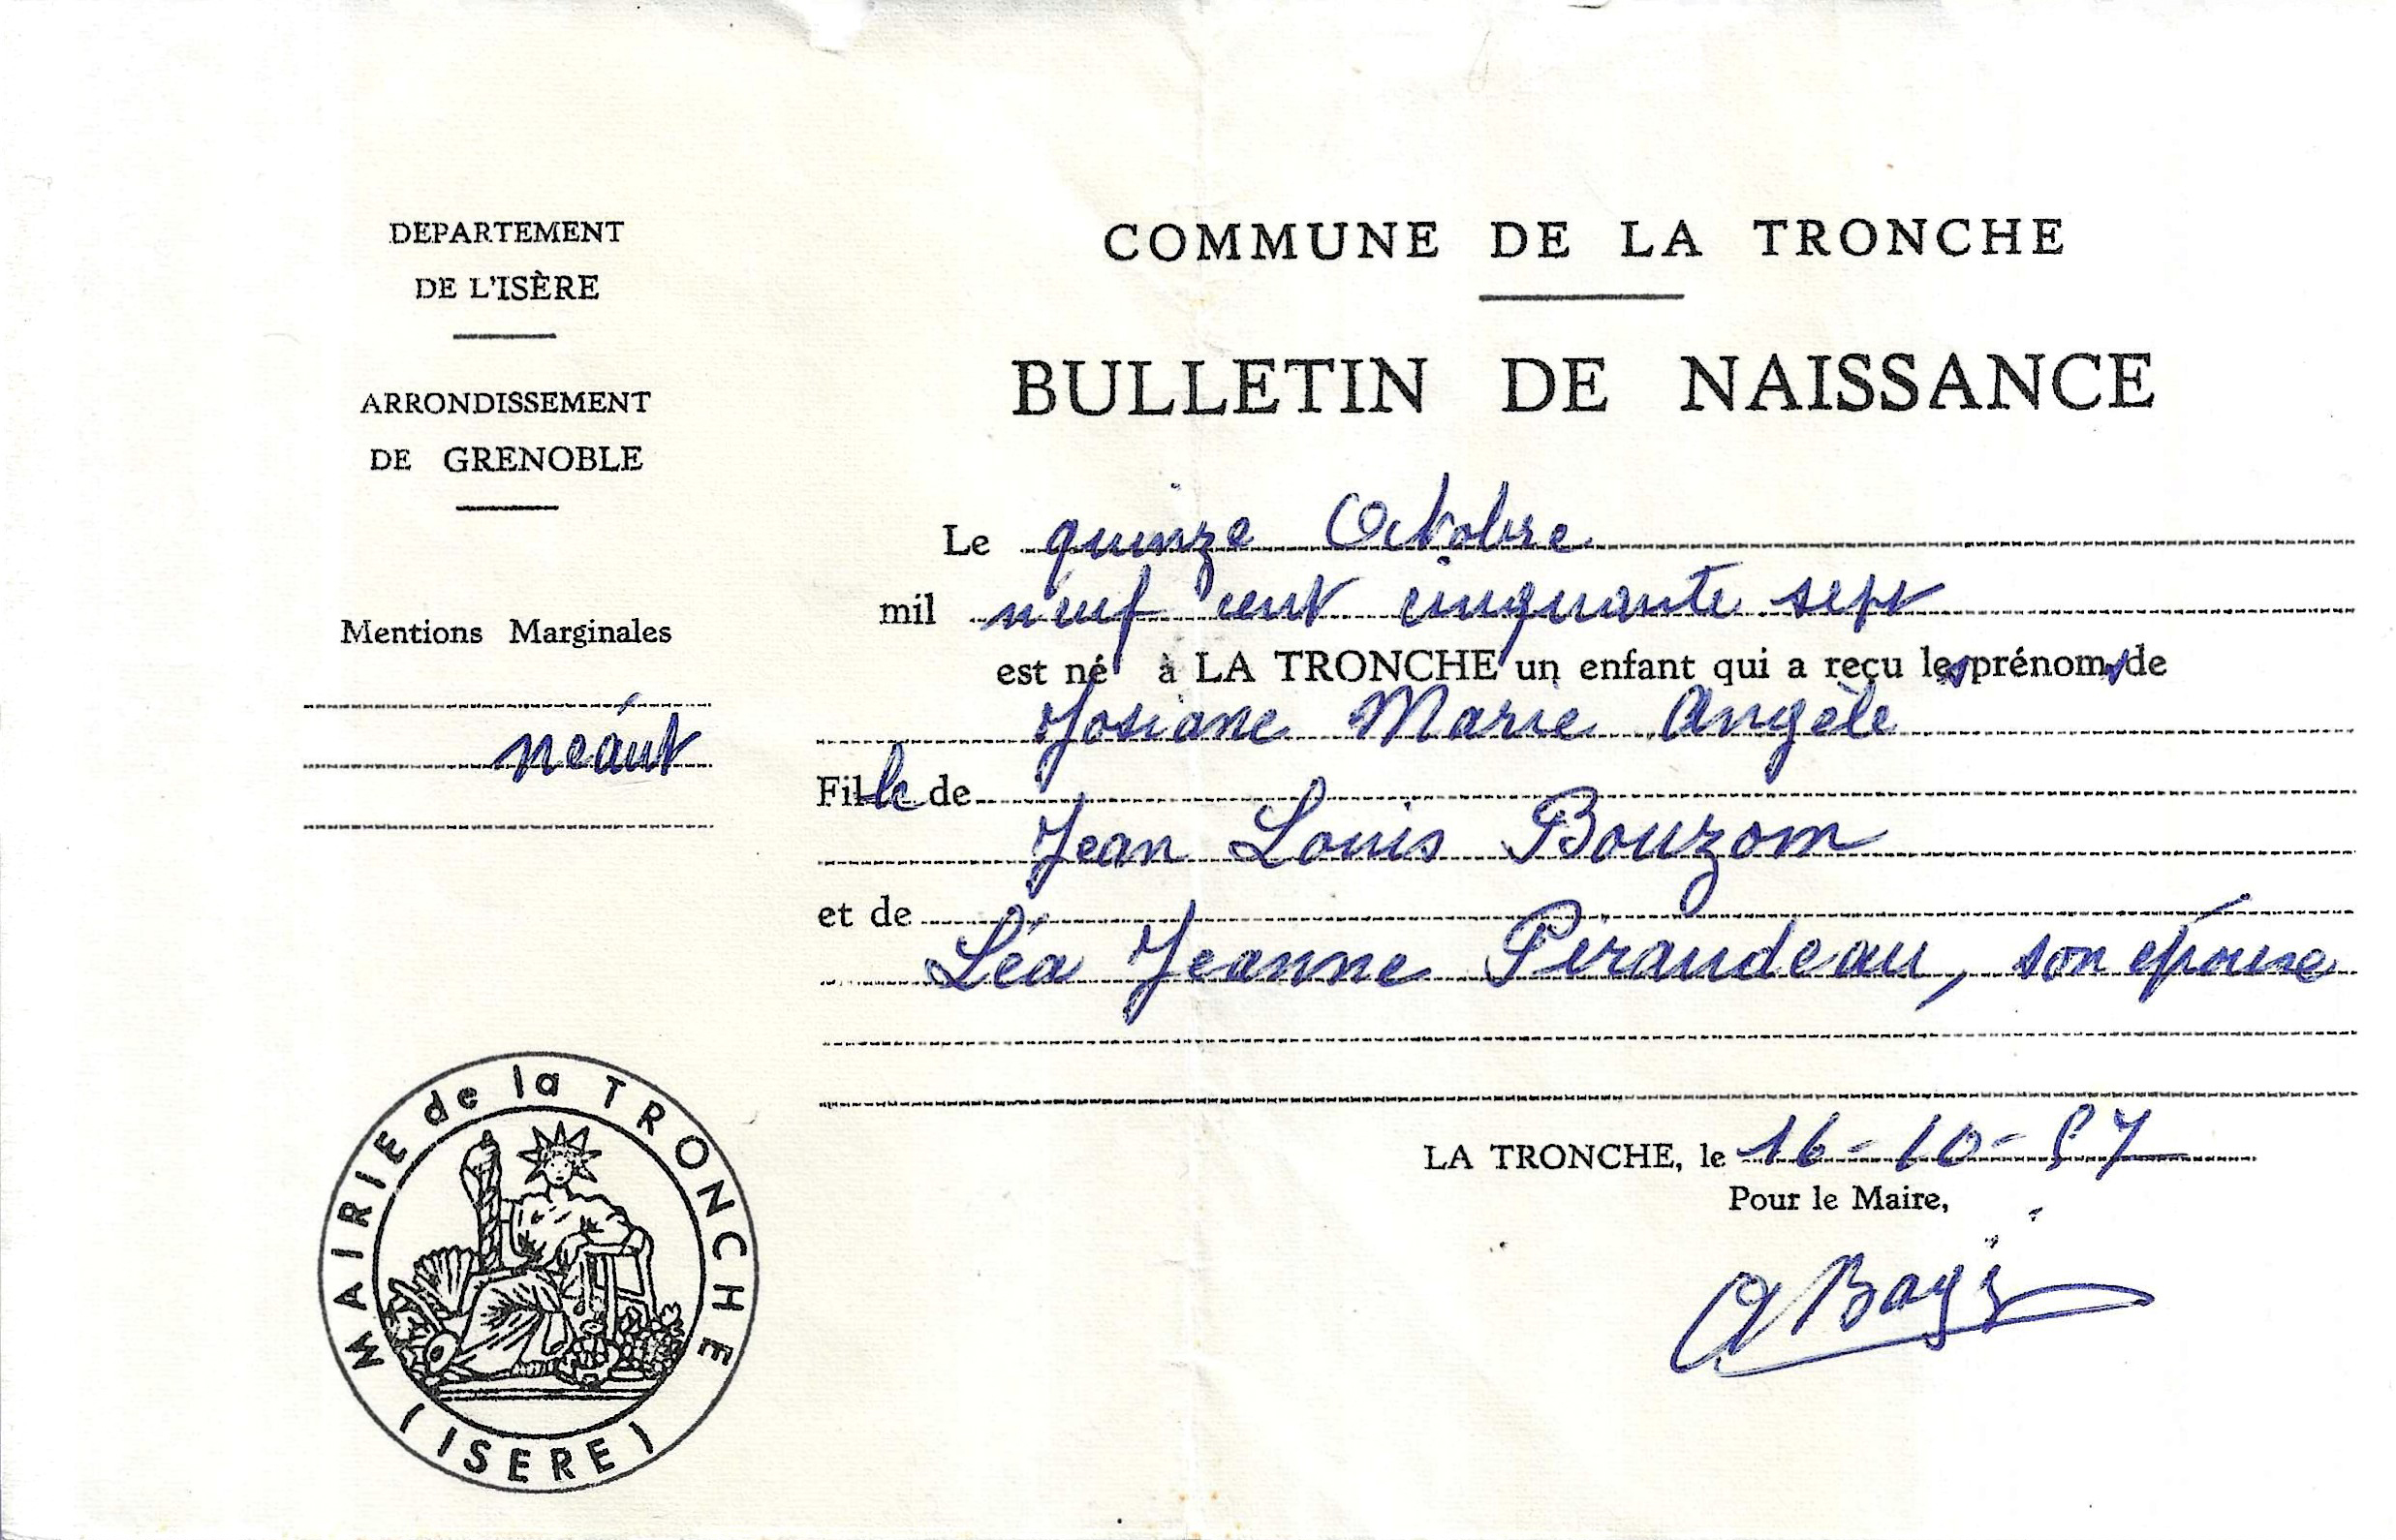 DEPARTEMENT
DE L'ISÈRE
ARRONDISSEMENT
DE GRENOBLE
Mentions Marginales
néant
MAIRIE de la TRONCHE
(ISERE)
COMMUNE DE LA TRONCHE
BULLETIN DE NAISSANCE
Le quinze Octobre
mil neuf cent cinquante sept
est né à LA TRONCHE un enfant qui a reçu les prénoms de
Josiane Marie Angèle
Fille de
Jean Louis Bouzom
et de
Léa Jeanne Peraudeau, son épouse
LA TRONCHE, le 16-10-57
Pour le Maire,